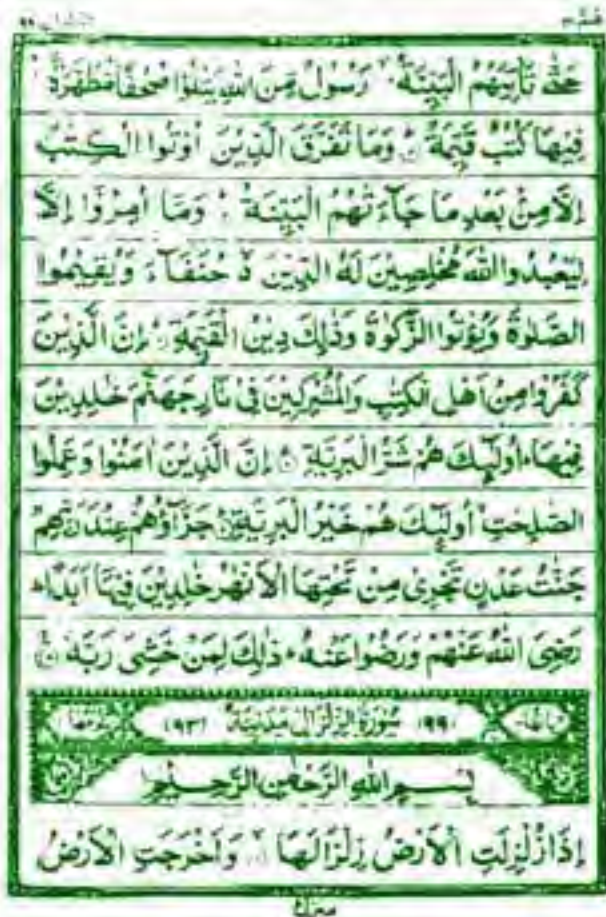 حَتّٰى تَاْتِيَهُمُ الْبَيِّنَةُ ۙ رَسُوْلٌ مِّنَ اللّٰهِ يَتْلُوْا صُحُفًا مُّطَهَّرَةً ۙ
فِيْهَا كُتُبٌ قَيِّمَةٌ ۭ وَمَا تَفَرَّقَ الَّذِيْنَ اُوْتُوا الْكِتٰبَ
اِلَّا مِنْۢ بَعْدِ مَا جَآءَتْهُمُ الْبَيِّنَةُ ۭ وَمَا اُمِرُوْا اِلَّا
لِيَعْبُدُوا اللّٰهَ مُخْلِصِيْنَ لَهُ الدِّيْنَ ۙ حُنَفَآءَ وَيُقِيْمُوا
الصَّلٰوةَ وَيُؤْتُوا الزَّكٰوةَ وَذٰلِكَ دِيْنُ الْقَيِّمَةِ ۭ اِنَّ الَّذِيْنَ
كَفَرُوْا مِنْ اَهْلِ الْكِتٰبِ وَالْمُشْرِكِيْنَ فِيْ نَارِ جَهَنَّمَ خٰلِدِيْنَ
فِيْهَا ۭ اُولٰٓئِكَ هُمْ شَرُّ الْبَرِيَّةِ ۭ اِنَّ الَّذِيْنَ اٰمَنُوْا وَعَمِلُوا
الصّٰلِحٰتِ اُولٰٓئِكَ هُمْ خَيْرُ الْبَرِيَّةِ ۭ جَزَآؤُهُمْ عِنْدَ رَبِّهِمْ
جَنّٰتُ عَدْنٍ تَجْرِيْ مِنْ تَحْتِهَا الْاَنْهٰرُ خٰلِدِيْنَ فِيْهَآ اَبَدًا ۭ
رَضِيَ اللّٰهُ عَنْهُمْ وَرَضُوْا عَنْهُ ۭ ذٰلِكَ لِمَنْ خَشِيَ رَبَّهٗ
(٩٩) سُوْرَةُ الزِّلْزَالِ مَدَنِيَّةٌ (٩٣)
بِسْمِ اللّٰهِ الرَّحْمٰنِ الرَّحِيْمِ
اِذَا زُلْزِلَتِ الْاَرْضُ زِلْزَالَهَا ۙ وَاَخْرَجَتِ الْاَرْضُ